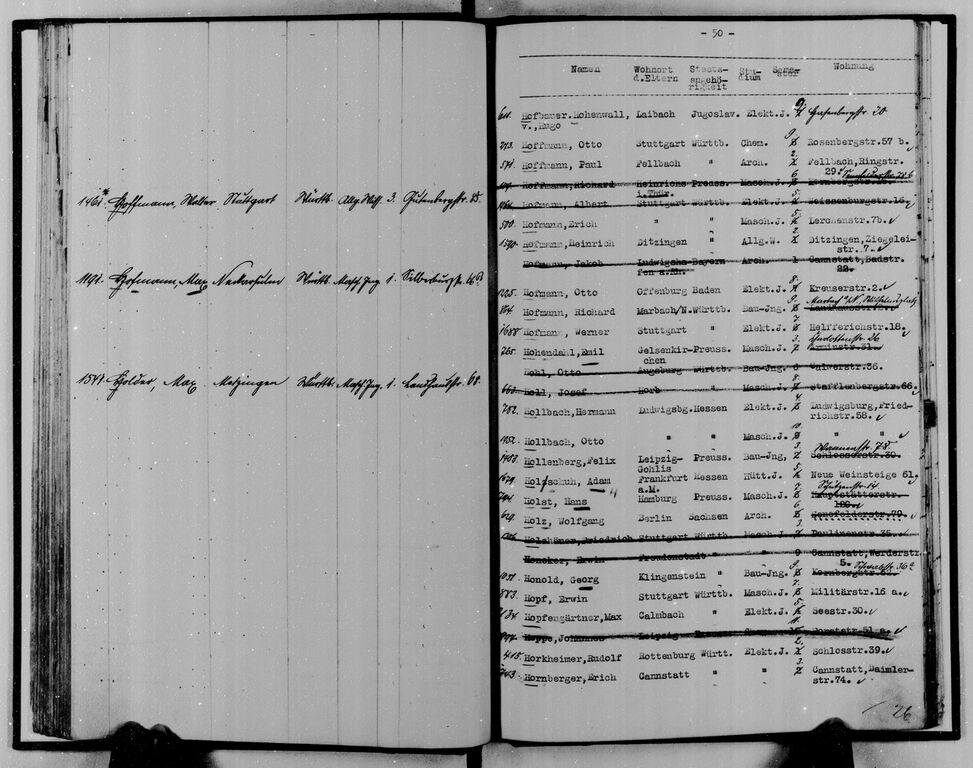 1461 Hoffmann, Walter Stuttgart Württb. Allg. Wiss. 3. Gutenbergstr. 85.
1191. Hofmann, Max Neckarsulm Württb. Masch. Ing. 1. Silberburgstr.
1577 Holder, Max Metzingen Württb. Masch. Ing. 1. Landhausstr. 68.
- 50 -
Namen Wohnort Staats- Stu- Seme- Wohnung
d.Eltern angehö- dium ster
rigkeit
Hofbauer.Hohenwall, Laibach Jugoslav. Elekt.J. Gutenbergstr. 20
v., Hugo
273. Hoffmann, Otto Stuttgart Württb. Chem. 9. Rosenbergstr.57 b.
571. Hoffmann, Paul Fellbach " Arch. 2. Fellbach, Ringstr.
29.
Hoffmann,Richard Heinrichs Preuss. Masch.J. 6
i.Thür.
Hofmann, Albert Stuttgart Württb. Elekt.J. 5. Weissenburgstr.16.
500. Hofmann,Erich " " Masch.J. 5. Lerchenstr.7b.
1590. Hofmann,Heinrich Ditzingen " Allg.W. 2. Ditzingen,Ziegelei-
str. 7.
Hofmann, Jakob Ludwigsha- Bayern Arch. 1 Cannstatt,Badstr.
fen a.Rh. 22.
1225. Hofmann, Otto Offenburg Baden Elekt.J. 8. Kreuserstr.2.
864. Hofmann, Richard Marbach/N.Württb. Bau-Jng. 9. Marbach a/N, Wilhelmsplatz
1688 Hofmann, Werner Stuttgart " Elekt.J. 7. Helfferichstr.18.
765. Hohendahl,Emil Gelsenkir-Preuss. Masch.J. 3.
chen
Hohl, Otto Augsburg Württb. Bau-Jng. 6 Calwerstr.36.
663. Holl, Josef Horb " Masch.J. 8. Stafflenbergstr.66.
782. Hollbach,Hermann Ludwigsbg.Hessen Elekt.J. 4. Ludwigsburg,Fried-
richstr.58.
1452. Hollbach, Otto " " Masch.J. 10. " "
1458. Hollenberg,Felix Leipzig- Preuss. Bau-Jng. 3. Schlosserstr.30.
Gohlis
1679. Holzschuh, Adam Frankfurt Hessen Hütt.J. 5. Neue Weinsteige 61.
a.M.
794. Holst, Hans Hamburg Preuss. Masch.J. 7. Schützenstr. 14 Hauptstätterstr.
629. Holz, Wolfgang Berlin Sachsen Arch. 6. Senefelderstr.79.
Holzhäuer,Friedrich Stuttgart Württb. Masch.J. 3. Paulinenstr.35.
Honeker, Erwin Freudenstadt " " 9 Cannstatt,Werderstr.
5.
1051. Honold, Georg Klingenstein " Bau-Jng. 9. Schwabstr. 36a Hornbergstr.
883. Hopf, Erwin Stuttgart Württb. Masch.J. 7. Militärstr.16 a.
1134 Hopfengärtner,Max Calmbach " Elekt.J. 5. Seestr.30.
Hoppe, Johannes Leipzig Preuss.
415. Horkheimer,Rudolf Rottenburg Württ. Elekt.J. 2. Schlosstr.39.
743. Hornberger,Erich Cannstatt " " 3. Cannstatt,Daimler-
str.74.
26